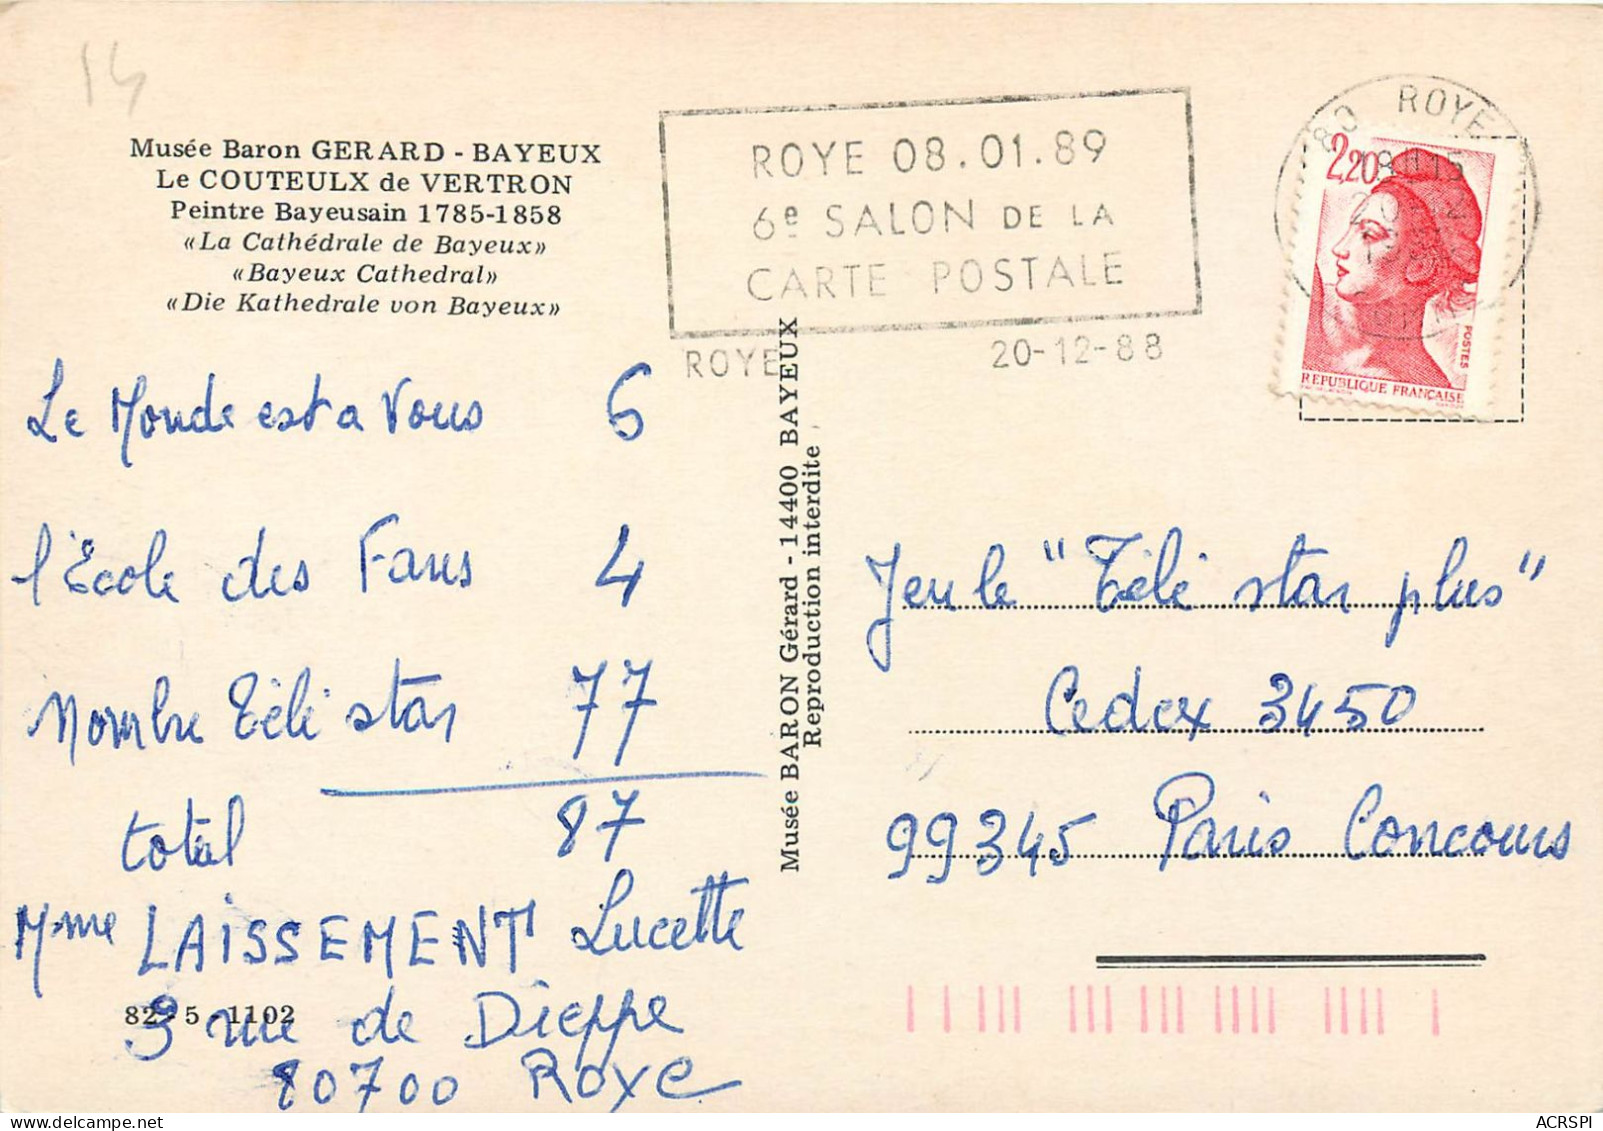 14
Musée Baron GERARD - BAYEUX
Le COUTEULX de VERTRON
Peintre Bayeusain 1785-1858
«La Cathédrale de Bayeux»
«Bayeux Cathedral»
«Die Kathedrale von Bayeux»
Le Monde est a Vous 6
l'École des Fans 4
Nombre Télé star 77
total 87
Mme LAISSEMENT Lucette
82 5 1102
3 rue de Dieppe
80700 Roye
Musée BARON Gérard - 14400 BAYEUX
Reproduction interdite
ROYE 08.01.89
6e SALON DE LA
CARTE POSTALE
ROYE 20-12-88
80 ROYE
18H15
2,20
POSTES
REPUBLIQUE FRANÇAISE
Jeu le "Télé star plus"
Cedex 3450
99345 Paris Concours
ACRSPI